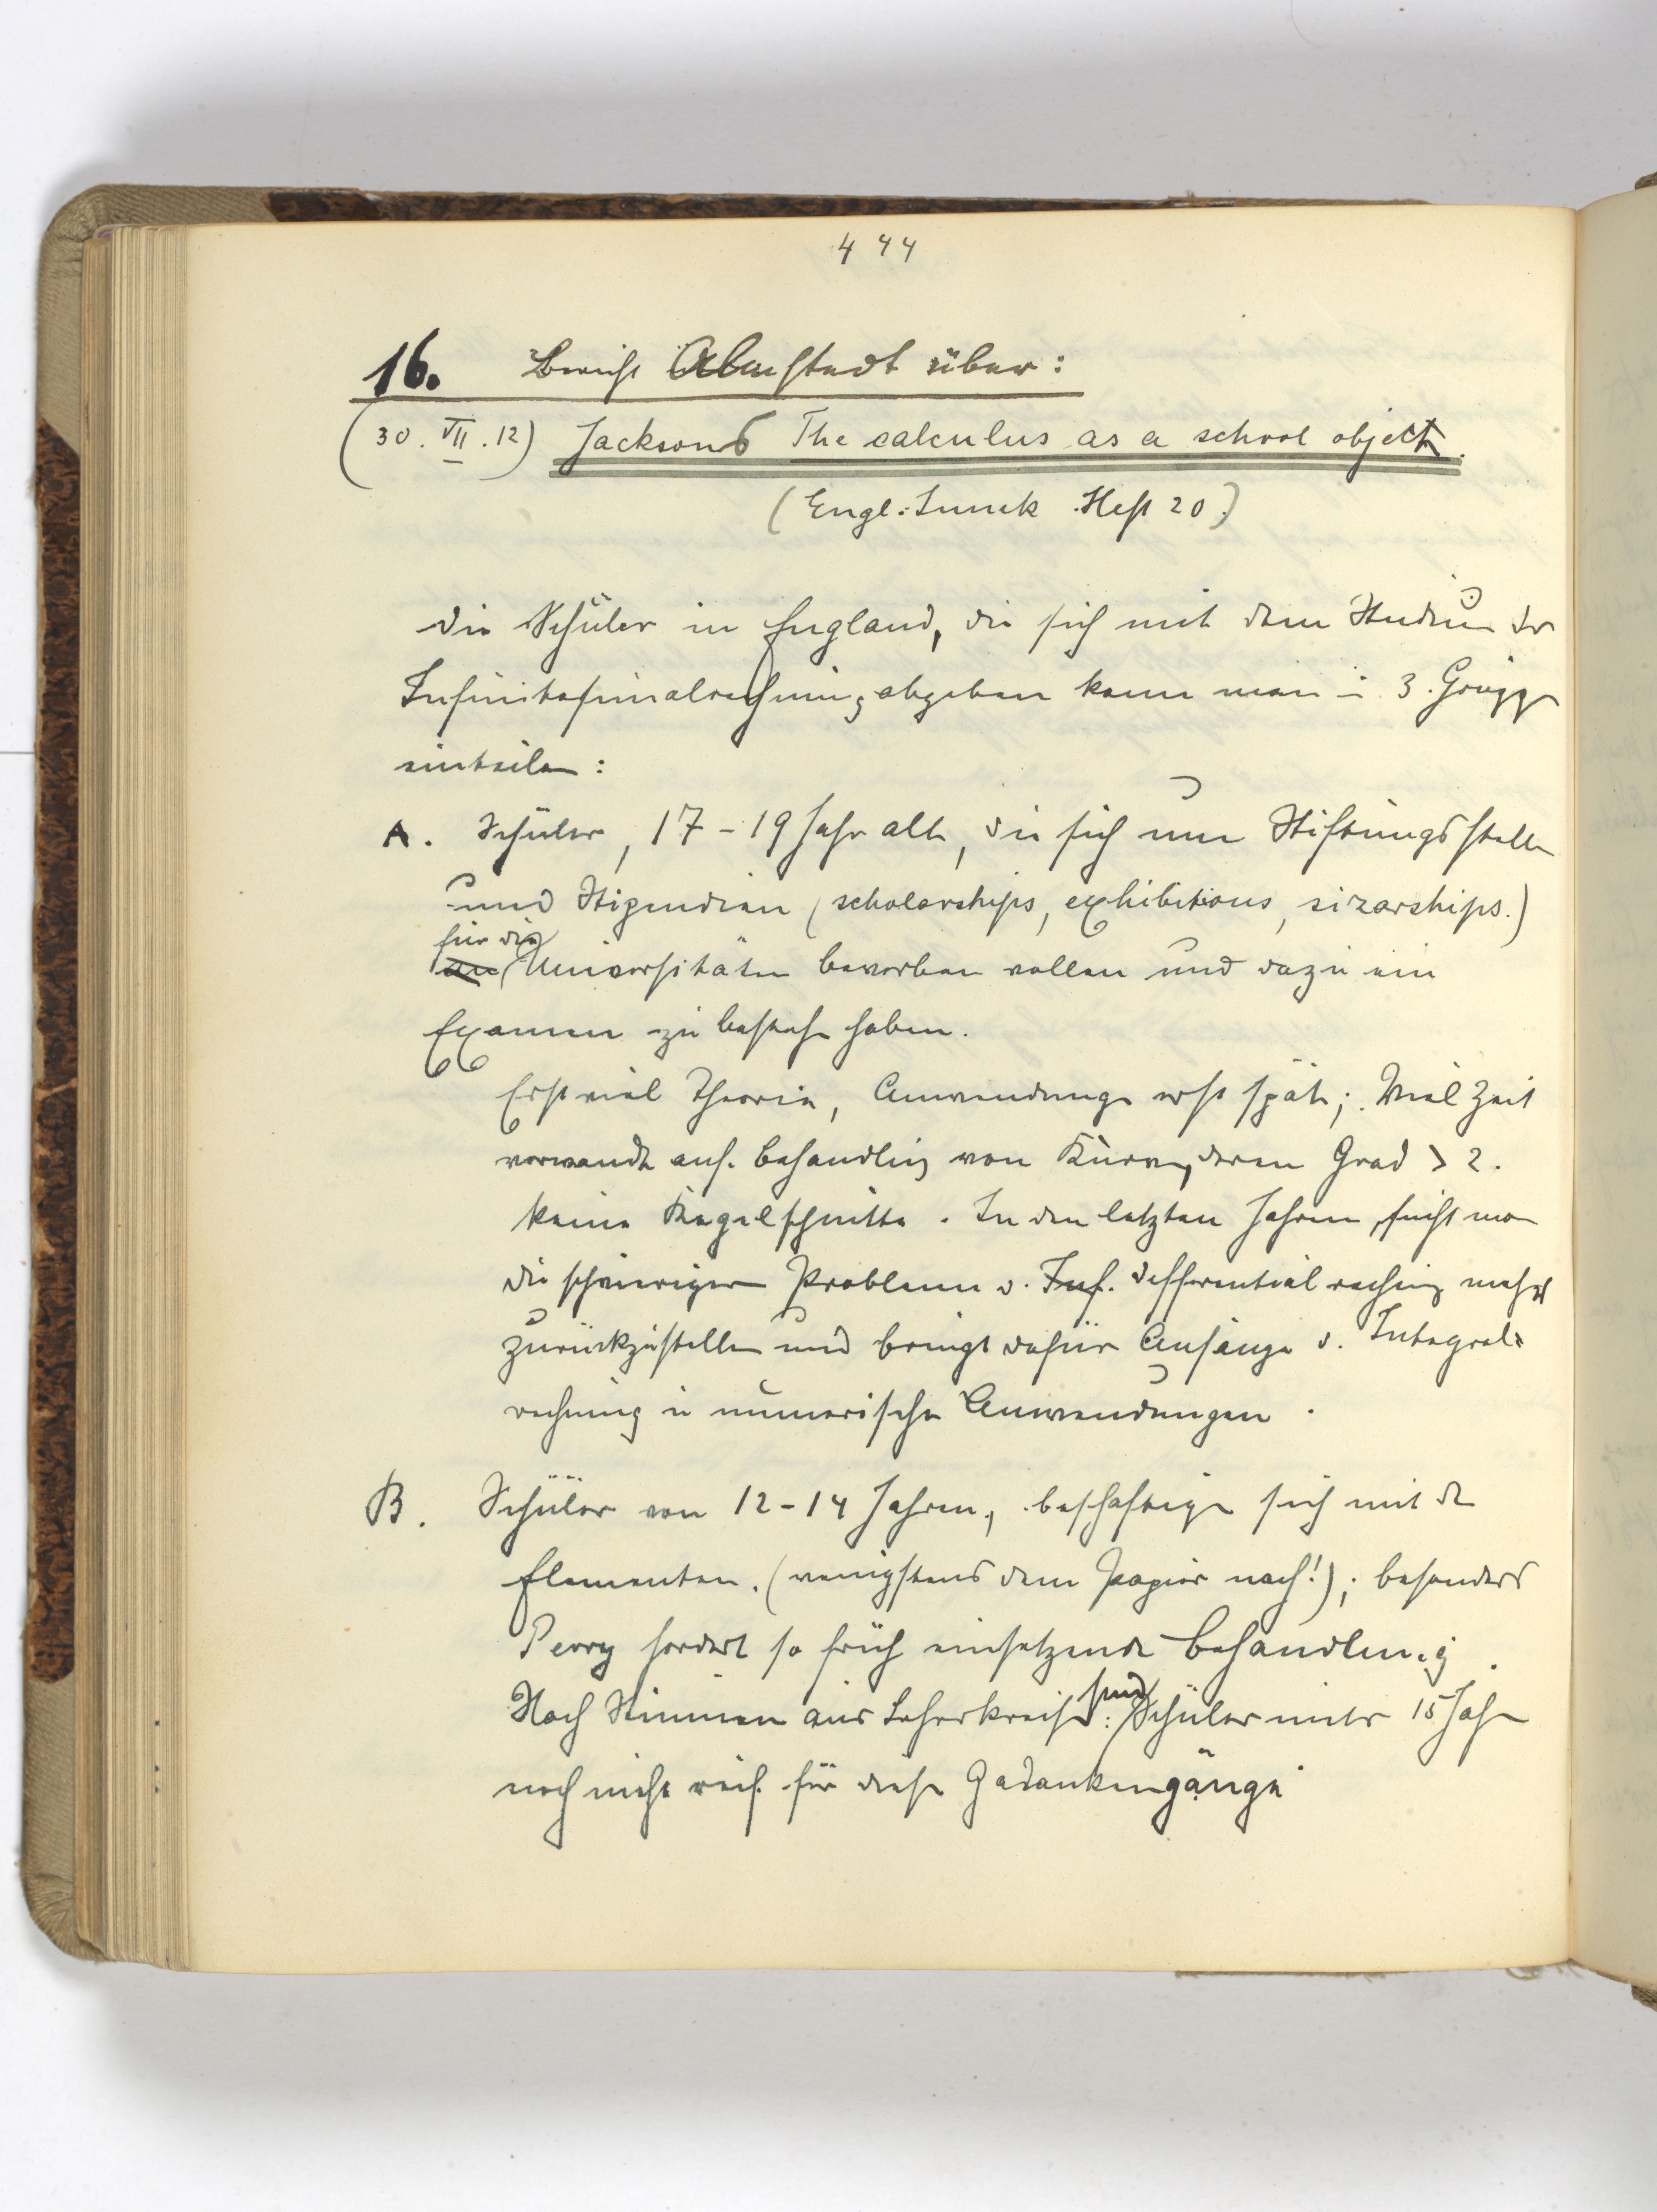 444
16. Bericht Almstedt über:
(30. VII. 12) Jacksons The calculus as a school objekt.
(Engl: Imuk Heft 20.)
Die Schüler in England, die sich mit dem Studium der
Infinitesimalrechnung abgeben kann man in 3. Gruppen
einteilen:
A. Schüler, 17-19 Jahr alt, die sich um Stiftungsstellen
und Stipendien (scholarships, exhibitions, sizarships.)
für die
an Universitäten bewerben wollen und dazu ein
Examen zu bestehen haben.
Erst viel Theorie, Anwendungen erst spät; Viel Zeit
verwandt auf Behandlung von Kurven, deren Grad > 2.
keine Kegelschnitte. In den letzten Jahren, sucht man
die schwierigen Probleme d. Inf. Differentialrechnung mehr
zurückzustellen und bringt dafür Anfänge d. Integral-
rechnung u numerische Anwendungen.
B. Schüler von 12-14 Jahren, beschäftigen sich mit den
Elementen. (wenigstens dem Papier nach!); besonders
Perry fordert so früh einsetzende Behandlung.
sind
Nach Stimmen aus Lehrerkreisen: Schüler unter 15 Jahren
noch nicht reif für diese Gedankengänge